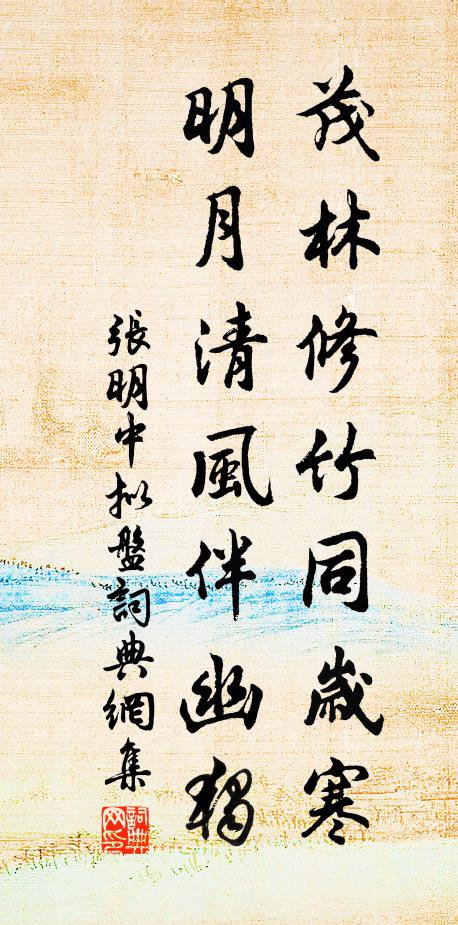 茂林修竹同歲寒
明月清風伴幽獨
張明中拟盤詞典網集
詞典
网